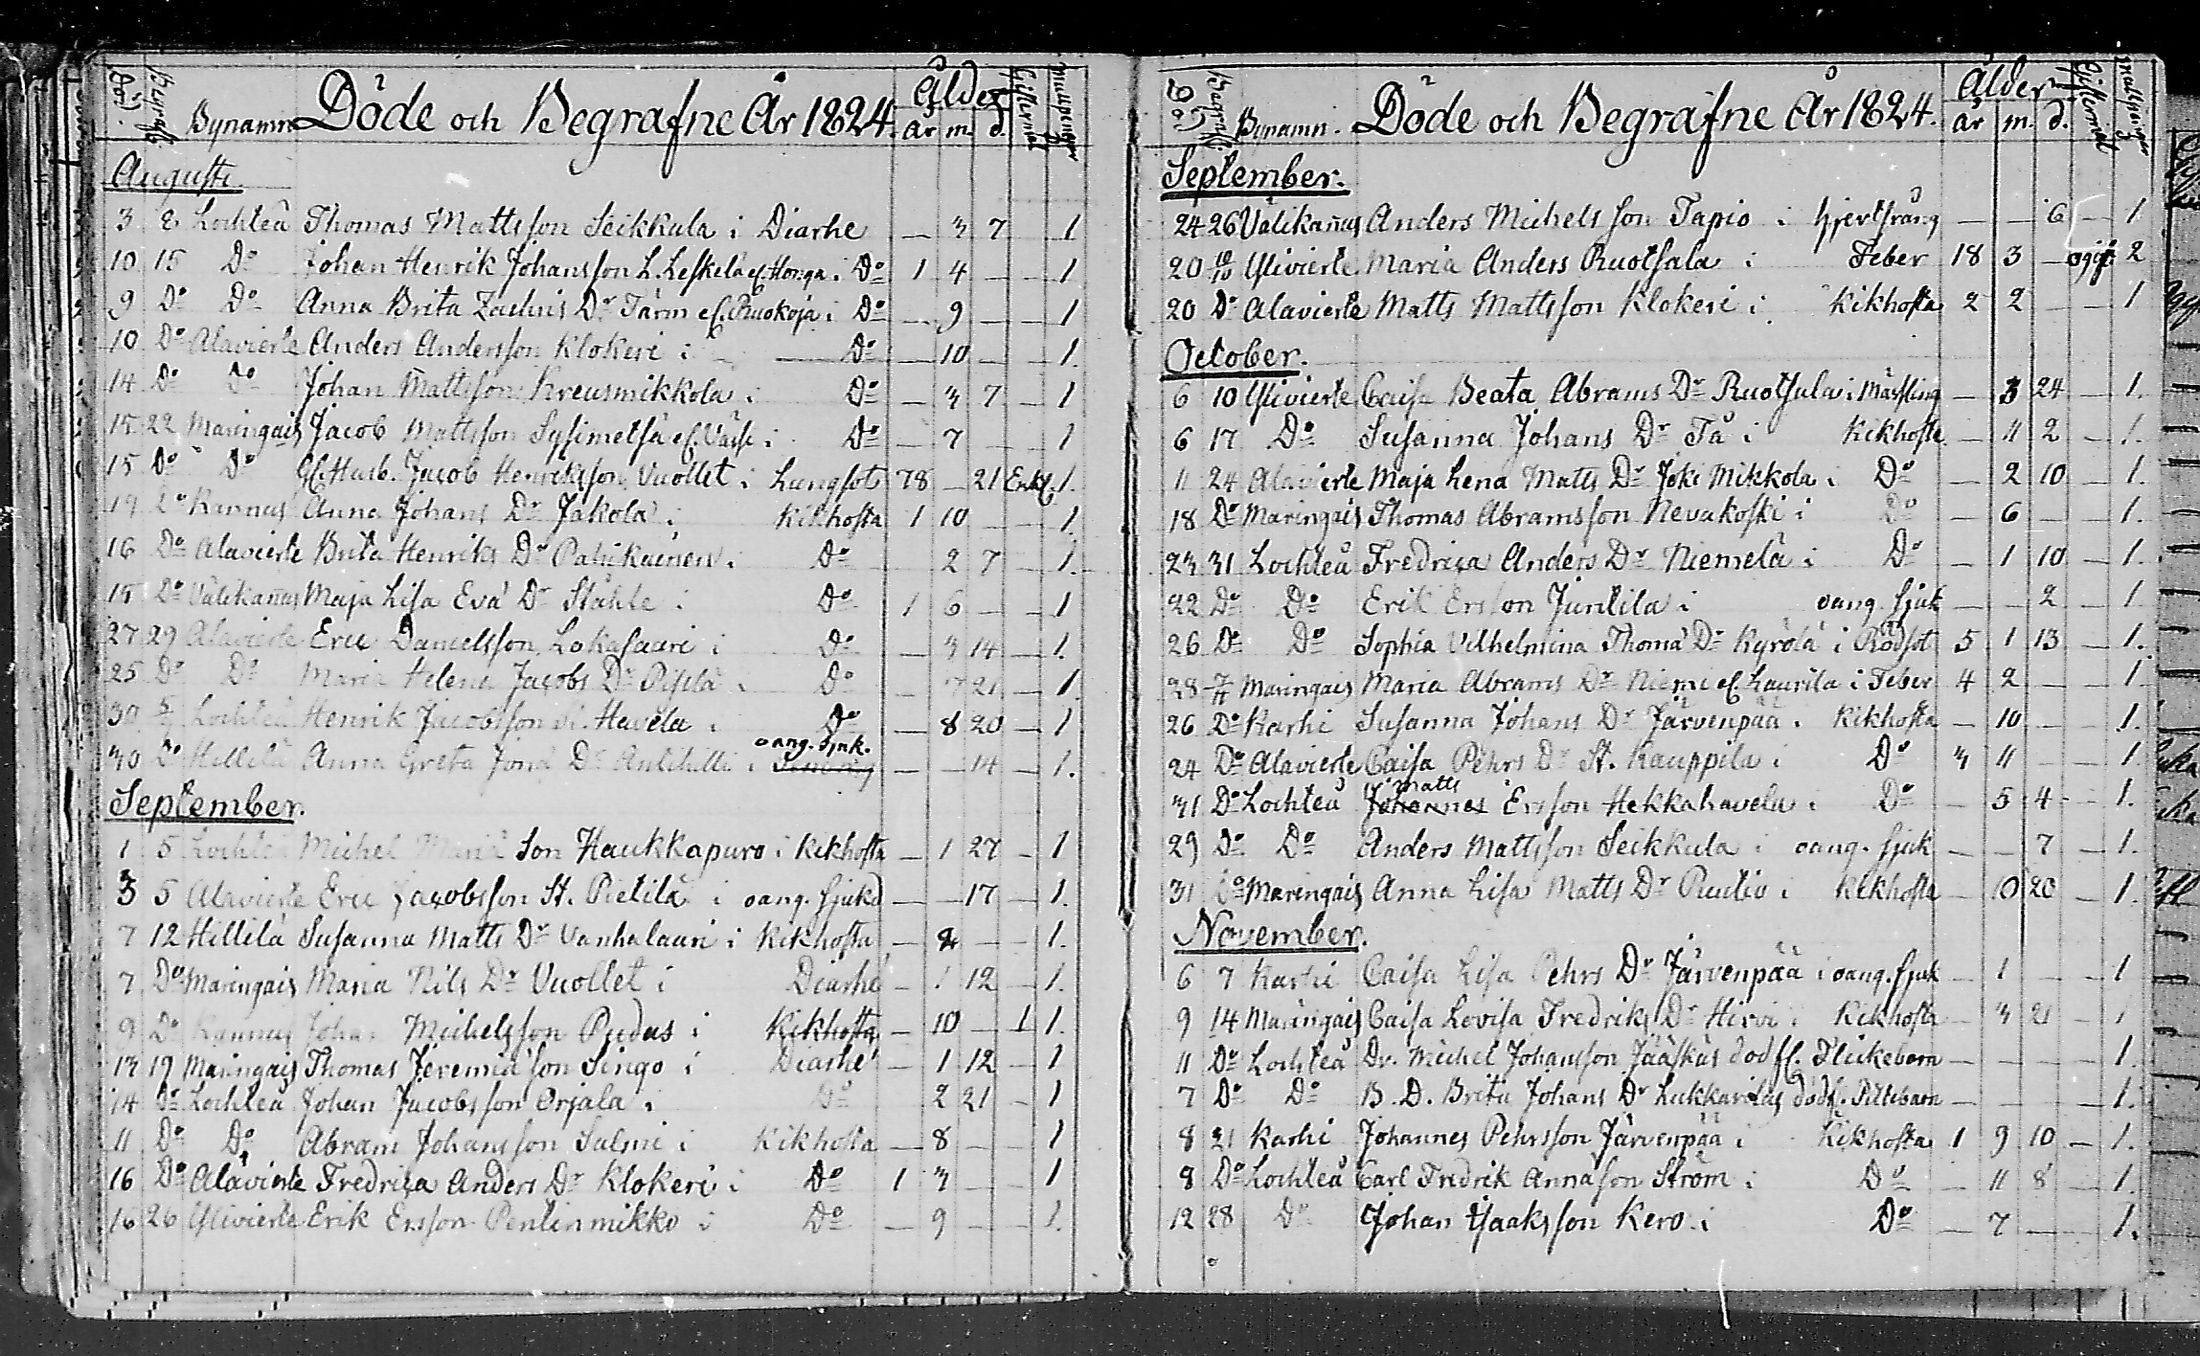 Död. Begrafn. Bynamn. Döde och Begrafne År 1824. Ålder år m. d. Giftermål Mullpengar
Augusti.
3 8 Lochteå Thomas Mattsson Seikkula i Diarhe — 3 7 — 1
10 15 Do Johan Henrik Johansson L. Leskelä el. Honga i Do 1 4 — — 1
9 Do Do Anna Brita Zachris Dr Tärm el. Ruokoja i Do — 9 — — 1
10 Do Alavierte Anders Andersson Klokeri i Do — 10 — — 1.
14 Do Do Johan Mattsson Kreusmikkola i Do — 3 7 — 1
15 22 Maringais Jacob Mattsson Sysimetsä el. Värse i Do — 7 — 1
15 Do Do Gl. Husb. Jacob Henriksson Vuollet i Lungsot 78 — 21 Enkl. 1.
19 Do Kannus Anna Johans Dr Jakola i Kikhosta 1 10 — — 1.
16 Do Alavierte Brita Henriks Dr Pahikainen i Do 2 7 — 1.
15 Do Välikañus Maja Lisa Eva Dr Ståhle i Do 1 6 — — 1
27 29 Alavierte Eric Danielsson Lokasaari i Do — 3 14 — 1.
25 Do Do Maria Helena Jacobs Dr Pistä i Do — 7 21 — 1.
30 5/9 Lochteå Henrik Jacobsson Havela i Do — 8 20 — 1
30 Do Hillilä Anna Greta Jona Dr Antihilli i oang. sjuk. — — 14 — 1.
September.
1 5 Lochteå Michel Maria Son Haukkapuro i Kikhosta — 1 27 — 1
3 5 Alavierte Eric Jacobsson St. Pietilä i oang. sjukd — — 17 — 1.
7 12 Hillilä Susanna Matts Dr Vanhalauri i Kikhosta — 2 — — 1.
7 Do Maringais Maria Nils Dr Vuollet i Diarhé — 1 12 — 1.
9 Do Kannus Johan Michelsson Pudas i Kikhosta — 10 — 1 1.
13 19 Maringais Thomas Jeremiä son Singo i Diarhé — 1 12 — 1
14 Do Lochteå Johan Jacobsson Orjala i Do 2 21 — 1
11 Do Do Abram Johansson Salmi i Kikhosta — 8 — 1
16 Do Alavierte Fredrica Anders Dr Klokeri i Do 1 3 — — 1
16 26 Ylivierte Erik Ersson Pentinmikko i Do — 9 — — 1.
Död Begrafn. Bynamn. Döde och Begrafne År 1824. Ålder år m. d. Giftermål Mullpengar
September.
24 26 Välikañus Anders Michelsson Tapio i hjertsräng — — 6 — 1.
20 10/10 Ylivierte Maria Anders Ruotsala i Feber 18 3 — ogift 2
20 Do Alavierte Matts Mattsson Klokeri i Kikhosta 2 2 — — 1
October.
6 10 Ylivierte Caisa Beata Abrams Dr Ruotsula i Mässling — 3 24 — 1.
6 17 Do Susanna Johans Dr Tå i Kikhosta — 11 2 — 1.
11 24 Alavierte Maja Lena Matts Dr Joki Mikkola i Do — 2 10 — 1.
18 Do Maringais Thomas Abramsson Nevakoski i Do — 6 — — 1.
23 31 Lochteå Fredrica Anders Dr Niemelä i Do — 1 10 — 1.
22 Do Do Erik Ersson Juntila i oang. sjuk — — 2 — 1.
26 Do Do Sophia Vilhelmina Thomä Dr Kyrölä i Rödsot 5 1 13 — 1.
28 7/11 Maringais Maria Abrams Dr Niemi el. Laurila i Feber 4 2 — — 1
26 Do Karhi Susanna Johans Dr Järvenpää i Kikhosta — 10 — — 1.
24 Do Alavierte Caisa Pehrs Dr St. Kauppila i Do 3 11 — — 1
31 Do Lochteå Johannes Matts Ersson Hekkahavela i Do — 5 4 — 1.
29 Do Do Anders Mattsson Seikkula i oang. sjuk — — 7 — 1.
31 Do Maringais Anna Lisa Matts Dr Ruutio i Kikhosta — 10 20 — 1.
November.
6 7 Karhi Caisa Lisa Pehrs Dr Järvenpää i oang. sjuk — 1 — — 1
9 14 Maringais Caisa Lovisa Fredriks Dr Hirvi i Kikhosta — 3 21 — 1
11 Do Lochteå Dr. Michel Johansson Jääskäs dödf. Flickebarn — — — — 1.
7 Do Do B. D. Brita Johans Dr Lukkarilas dödf. Piltebarn — — — — 1.
8 21 Karhi Johannes Pehrsson Järvenpää i Kikhosta 1 9 10 — 1.
8 Do Lochteå Carl Fredrik Annäson Ström i Do — 11 8 — 1.
12 28 Do Johan Isaksson Kero i Do — 7 — — 1.